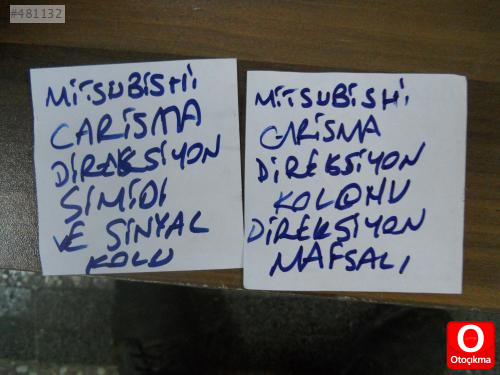 #481132
MİTSUBİSHİ
CARİSMA
DİREKSİYON
SİMİDİ
VE SİNYAL
KOLU
MİTSUBİSHİ
CARİSMA
DİREKSİYON
KOLONU
DİREKSİYON
MAFSALI
O
Otoçıkma